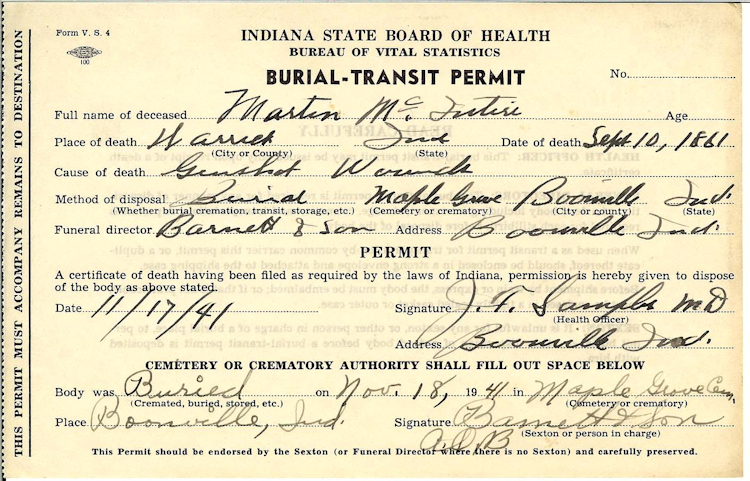 Form V. S. 4
100
INDIANA STATE BOARD OF HEALTH
BUREAU OF VITAL STATISTICS
BURIAL-TRANSIT PERMIT
No.
Full name of deceased Martin Mc Intire Age
Place of death Warrick Ind Date of death Sept 10, 1861
(City or County) (State)
Cause of death Gunshot Wounds
Method of disposal Burial Maple Grove Boonville Ind.
(Whether burial cremation, transit, storage, etc.) (Cemetery or crematory) (City or county) (State)
Funeral director Barnett & Son Address Boonville Ind.
PERMIT
A certificate of death having been filed as required by the laws of Indiana, permission is hereby given to dispose
of the body as above stated.
Date 11/17/41 Signature J. F. Samples MD
(Health Officer)
Address Boonville Ind.
CEMETERY OR CREMATORY AUTHORITY SHALL FILL OUT SPACE BELOW
Body was Buried on Nov. 18, 1941 in Maple Grove Cem.
(Cremated, buried, stored, etc.) (Cemetery or crematory)
Place Boonville, Ind. Signature Barnett & Son
(Sexton or person in charge)
This Permit should be endorsed by the Sexton (or Funeral Director where there is no Sexton) and carefully preserved.
THIS PERMIT MUST ACCOMPANY REMAINS TO DESTINATION